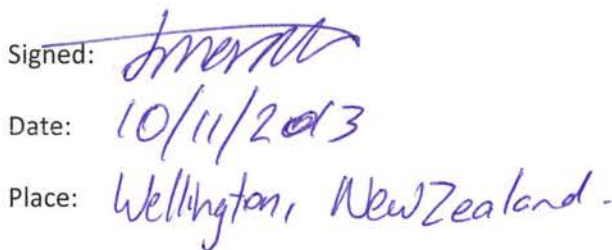 Signed:
Date: 10/11/2013
Place: Wellington, New Zealand.